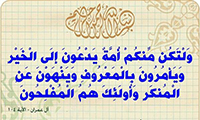 وَلْتَكُن مِّنكُمْ أُمَّةٌ يَدْعُونَ إِلَى الْخَيْرِ
وَيَأْمُرُونَ بِالْمَعْرُوفِ وَيَنْهَوْنَ عَنِ
الْمُنكَرِ وَأُولَٰئِكَ هُمُ الْمُفْلِحُونَ
آل عمران - الآية ١٠٤